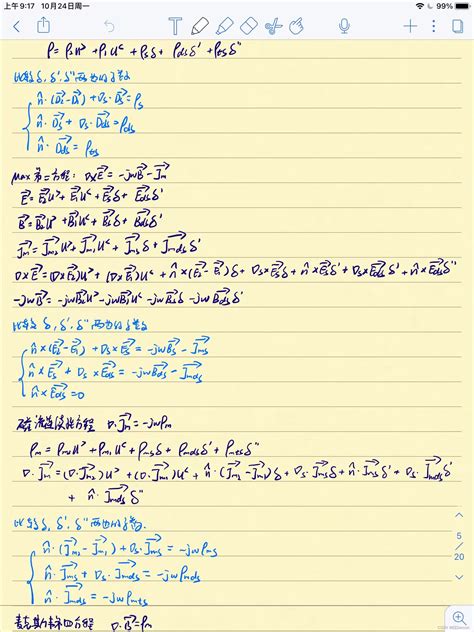 上午9:17 10月24日周一 99%
ρ=ρ₂U^>+ρ₁U^<+ρ_sδ+ρ_dsδ'+ρ_tsδ''
比较δ, δ', δ''两边的系数
n̂·(D₂-D₁)+D_s·D_s=ρ_s
n̂·D_s+D_s·D_ds=ρ_ds
n̂·D_ds=ρ_ts
Max第二方程: ▽×E=-jwB-J_m
E=E₂U^>+E₁U^<+E_sδ+E_dsδ'
B=B₂U^>+B₁U^<+B_sδ+B_dsδ'
J_m=J_m₂U^>+J_m₁U^<+J_msδ+J_mdsδ'
▽×E=(▽×E₂)U^>+(▽×E₁)U^<+n̂×(E₂-E₁)δ+▽_s×E_sδ+n̂×E_sδ'+▽_s×E_dsδ'+n̂×E_dsδ''
-jwB=-jwB₂U^>-jwB₁U^<-jwB_sδ-jwB_dsδ'
比较δ, δ', δ''两边的系数
n̂×(E₂-E₁)+▽_s×E_s=-jwB_s-J_ms
n̂×E_s+▽_s×E_ds=-jwB_ds-J_mds
n̂×E_ds=0
磁流连续性方程 ▽·J_m=-jwρ_m
ρ_m=ρ_m₂U^>+ρ_m₁U^<+ρ_msδ+ρ_mdsδ'+ρ_mtsδ''
▽·J_m=(▽·J_m₂)U^>+(▽·J_m₁)U^<+n̂·(J_m₂-J_m₁)δ+▽_s·J_msδ+n̂·J_msδ'+▽_s·J_mdsδ'
+n̂·J_mdsδ''
比较δ, δ', δ''两边的系数.
n̂·(J_m₂-J_m₁)+▽_s·J_ms=-jwρ_ms
n̂·J_ms+▽_s·J_mds=-jwρ_mds
n̂·J_mds=-jwρ_mts
5
20
麦克斯韦第四方程 ▽·B=ρ_m